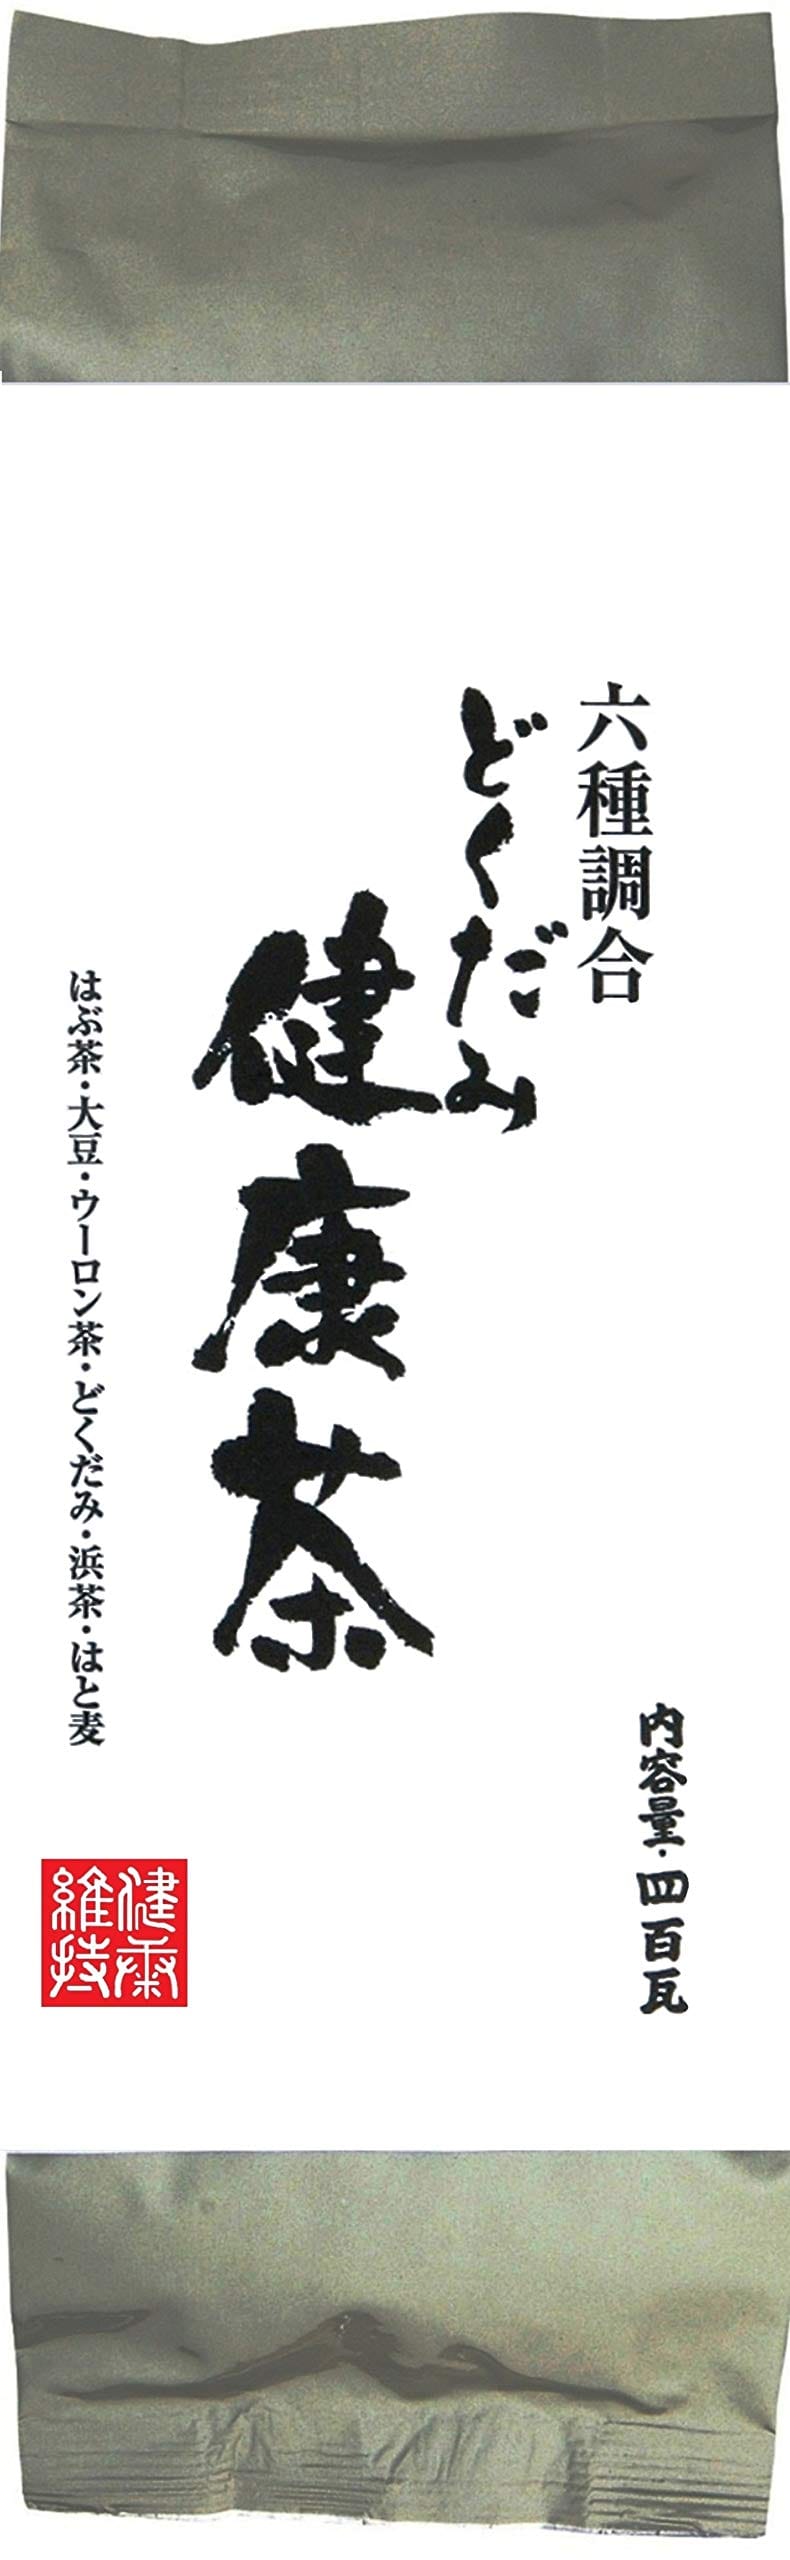 六種調合
どくだみ
健康茶
はぶ茶・大豆・ウーロン茶・どくだみ・浜茶・はと麦
内容量・四百瓦
健康
維持